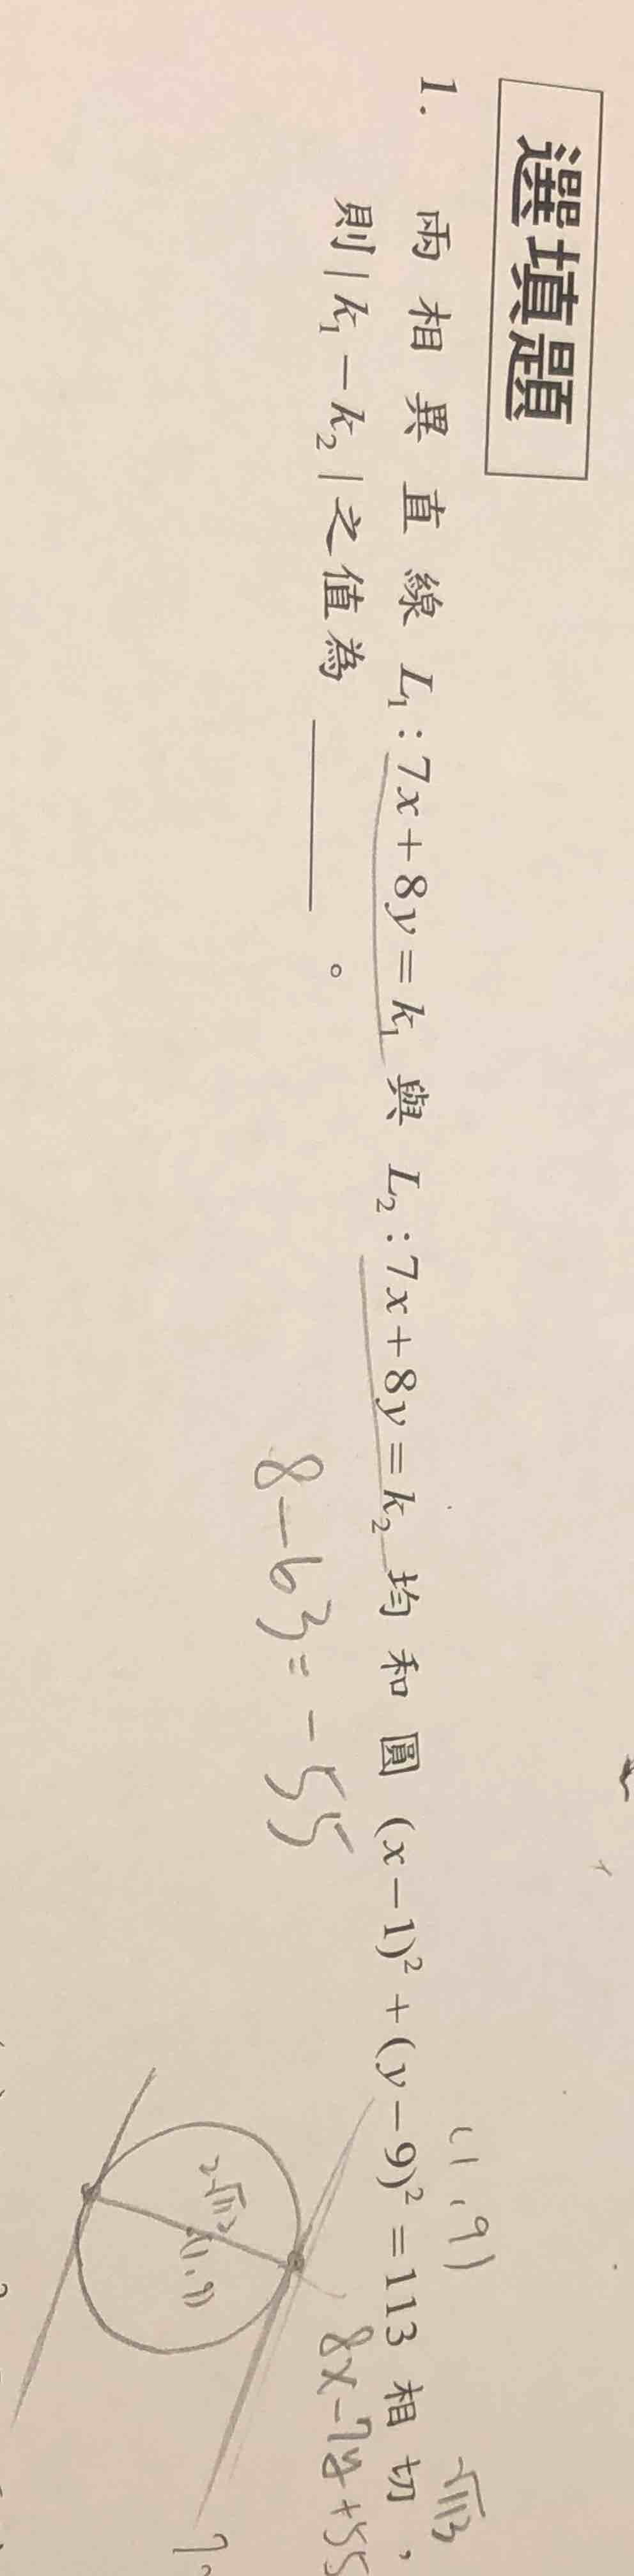 選填題
1. 兩相異直線 L₁:7x+8y=k₁ 與 L₂:7x+8y=k₂ 均和圓 (x−1)²+(y−9)²=113 相切,
則|k₁−k₂|之值為______。
(1,9)
√113
8−63=−55
8x−7y+55
2√113
(1,9)